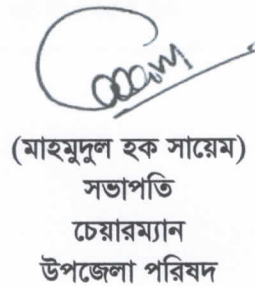 (মাহমুদুল হক সায়েম)
সভাপতি
চেয়ারম্যান
উপজেলা পরিষদ